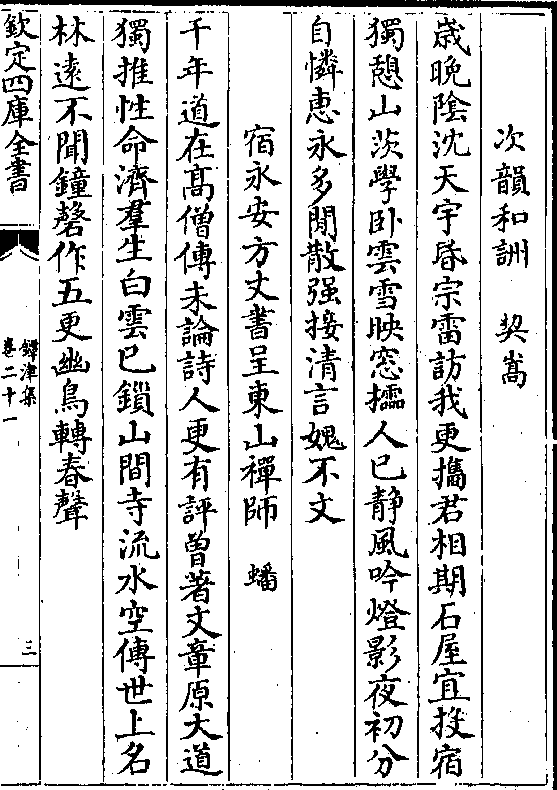 次韻和詶　契嵩
歳晚隂沈天宇昏宗雷訪我更攜君相期石屋宜投宿
獨憩山茨學卧雲雪映窓擩人已静風吟燈影夜初分
自憐惠永多閒散强接清言媿不文
宿永安方丈書呈東山禪師　蟠
千年道在髙僧傳未論詩人更有評曽著文章原大道
獨推性命濟羣生白雲已鎖山間寺流水空傳世上名
林逺不聞鐘磬作五更幽鳥轉春聲
欽定四庫全書
鐔津集
卷二十一
三